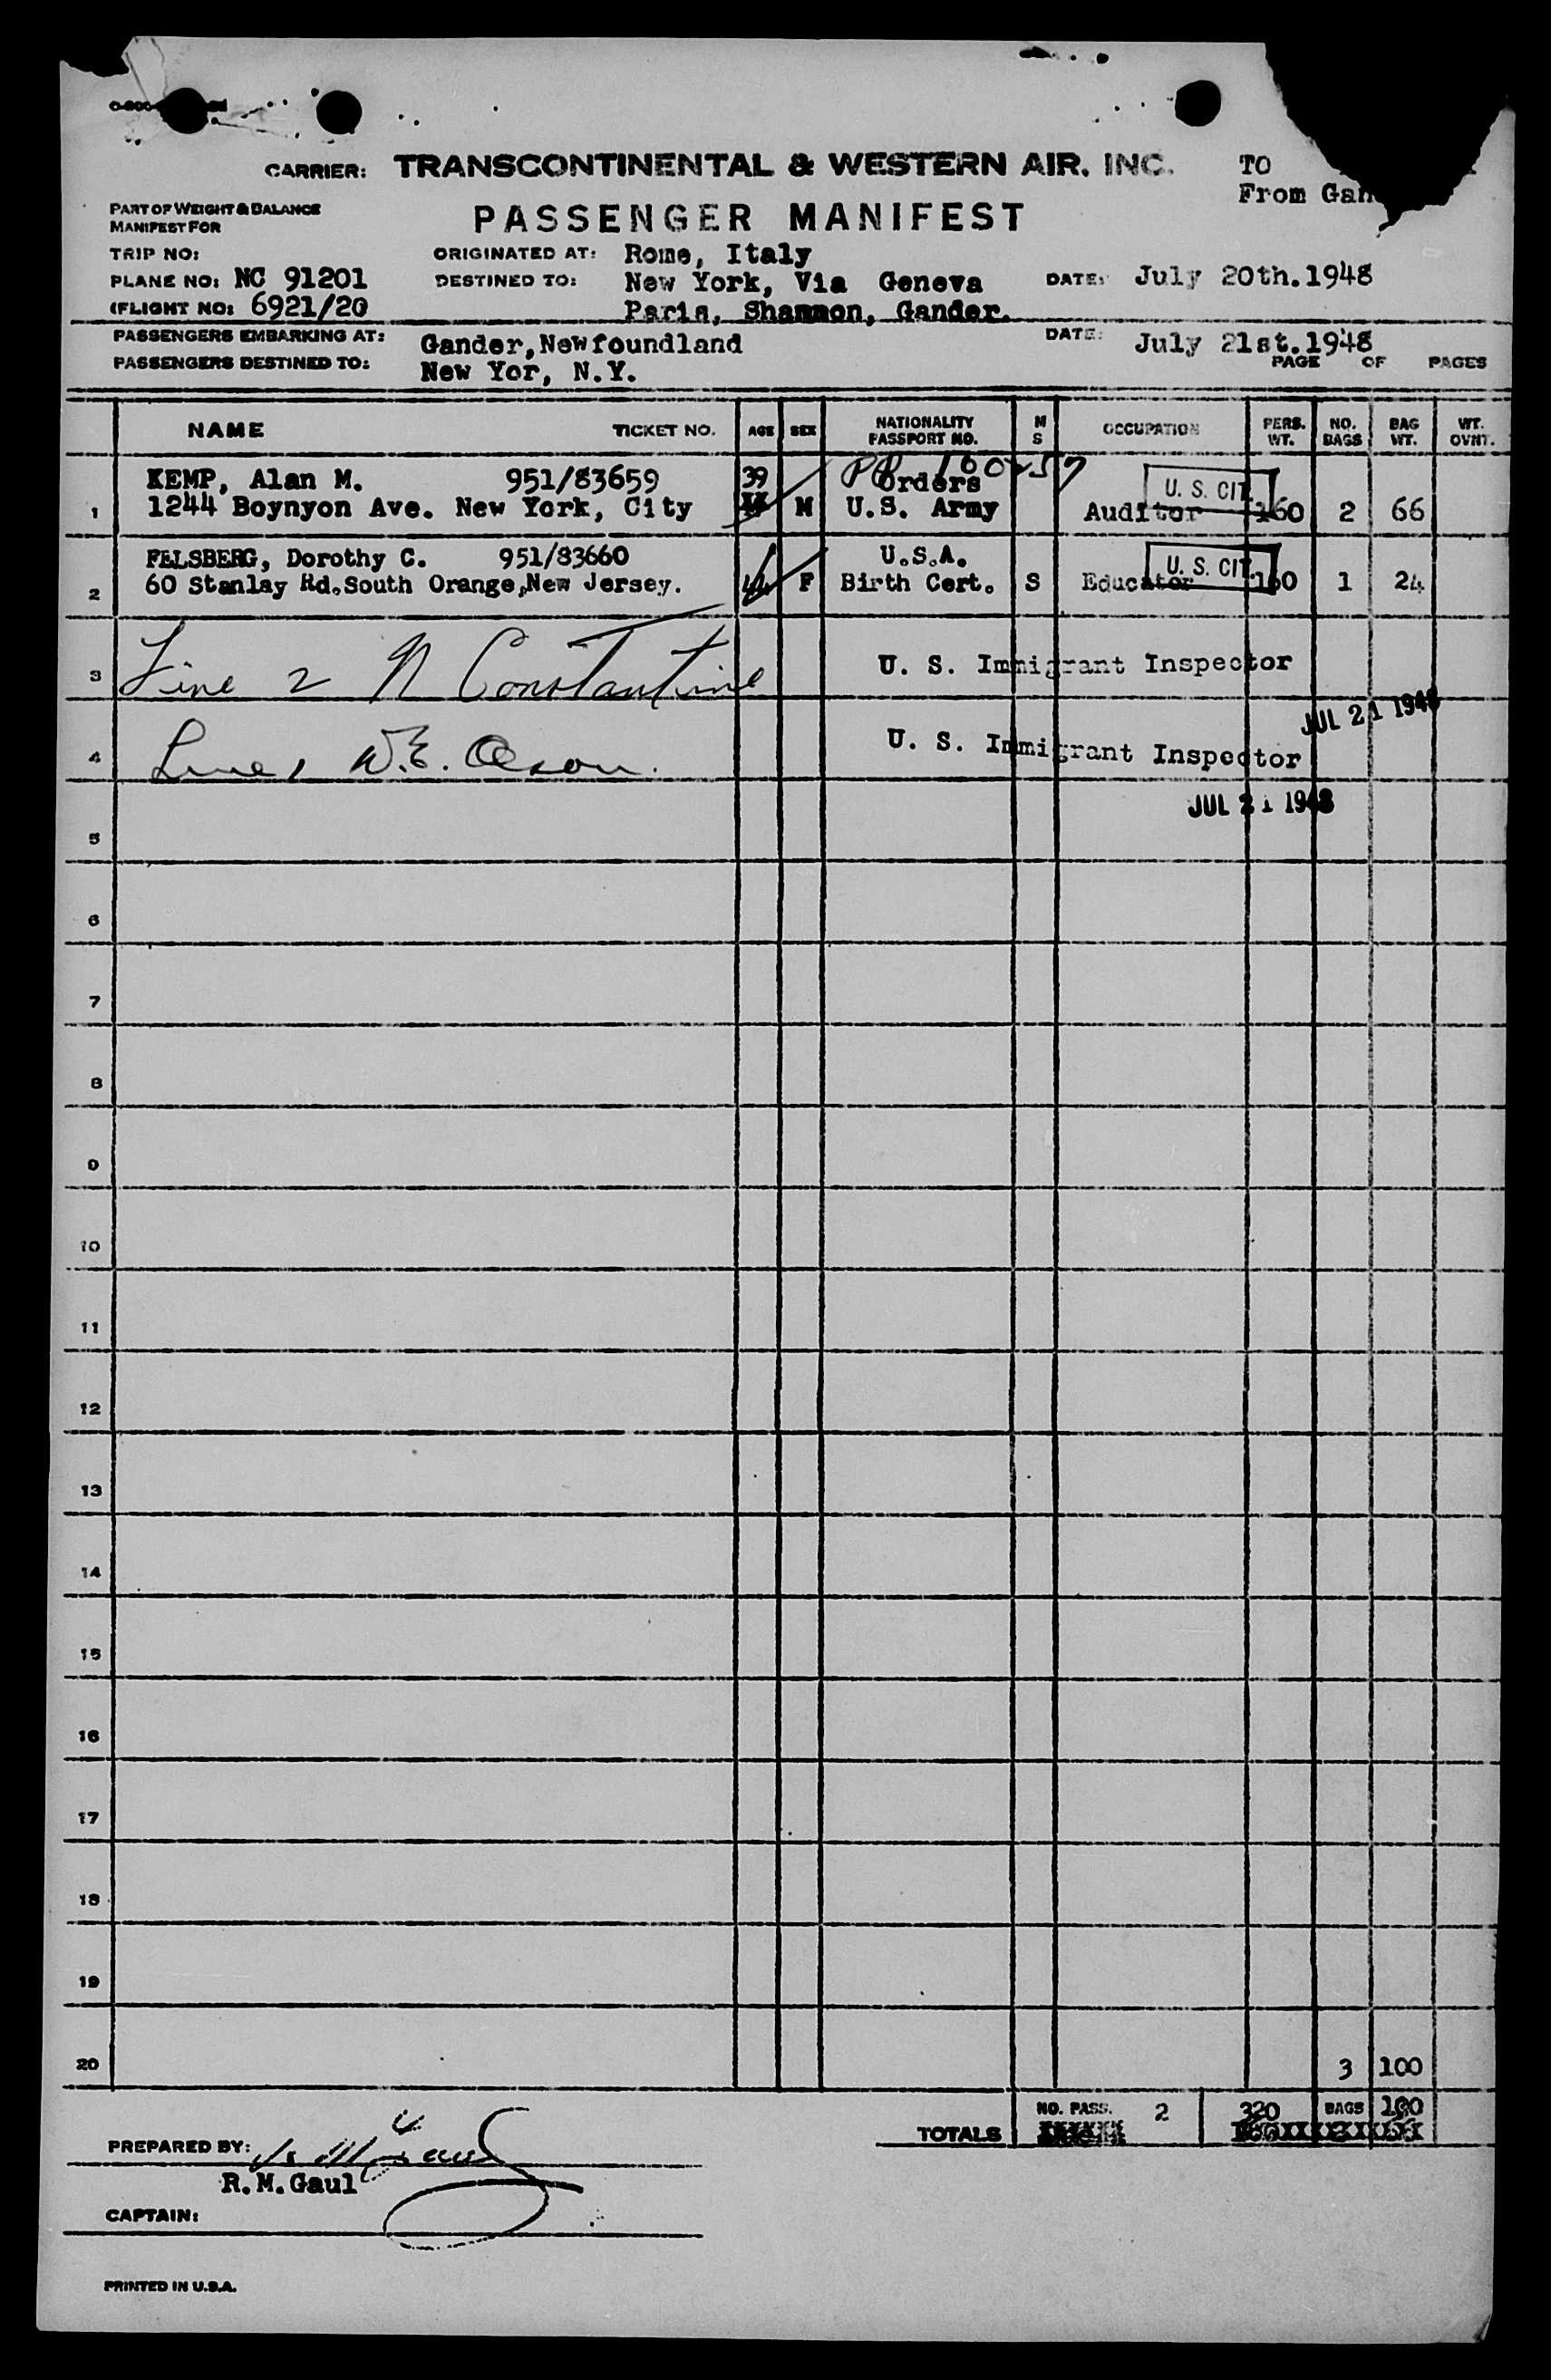 CARRIER: TRANSCONTINENTAL & WESTERN AIR. INC. TO
From Gan
PART OF WEIGHT & BALANCE
MANIFEST FOR
PASSENGER MANIFEST
TRIP NO:
ORIGINATED AT: Rome, Italy
PLANE NO: NC 91201
DESTINED TO: New York, Via Geneva
DATE: July 20th.1948
FLIGHT NO: 6921/20
Paris, Shannon, Gander.
PASSENGERS EMBARKING AT: Gander,Newfoundland
DATE: July 21st.1948
PASSENGERS DESTINED TO: New Yor, N.Y.
PAGE OF PAGES
NAME TICKET NO. AGE SEX NATIONALITY PASSPORT NO. M S OCCUPATION PERS. WT. NO. BAGS BAG WT. WT. OVHT.
KEMP, Alan M. 951/83659 39 PP Orders U. S. CIT.
1 1244 Boynyon Ave. New York, City M U.S. Army Auditor 160 2 66
FELSBERG, Dorothy C. 951/83660 U.S.A. U. S. CIT.
2 60 Stanlay Rd.South Orange,New Jersey. F Birth Cert. S Educator 160 1 24
3 Line 2 N Constantine U. S. Immigrant Inspector
JUL 21 1948
4 Line 1 W.E. Olson. U. S. Immigrant Inspector
JUL 21 1948
5
6
7
8
9
10
11
12
13
14
15
16
17
18
19
20 3 100
TOTALS NO. PASS. 2 320 BAGS 100
PREPARED BY:
R.M.Gaul
CAPTAIN:
PRINTED IN U.S.A.